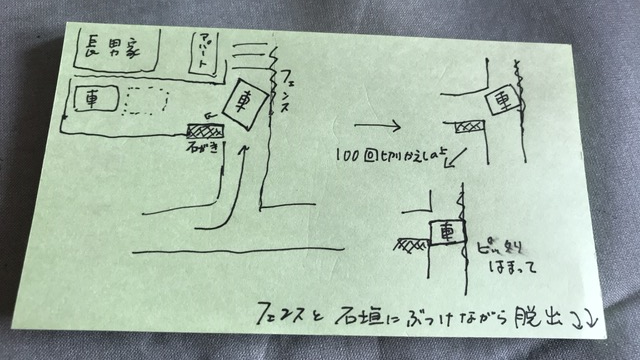 長男家
アパート
フェンス
車
車
石がき
車
100回切りかえしのち
車
ピッタリ
はまって
フェンスと石垣にぶつけながら脱出